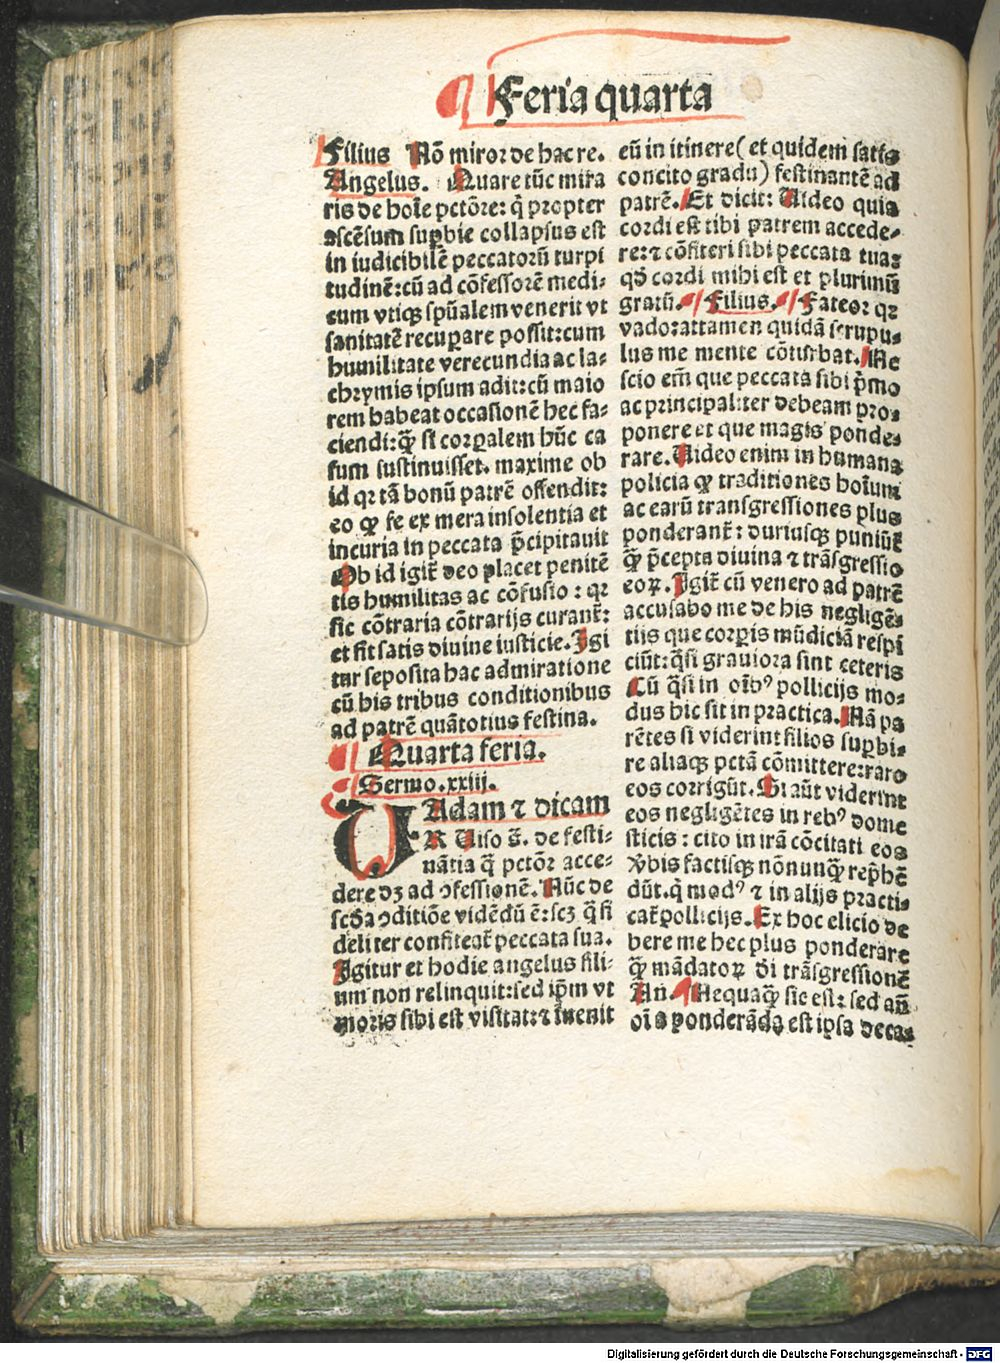 Feria quarta
Filius Nō miror de hac re.
Angelus. Quare tūc mira
ris de hoīe pctōre: q̄ propter
ascēsum supbie collapsus est
in iudicibilē peccatorū turpi
tudinē: cū ad cōfessorē medi-
cum vtiqꝫ spūalem venerit vt
sanitatē recuꝑare possit: cum
humilitate verecundia ac la-
chrymis ipsum adit: cū maio
rem habeat occasionē hec fa-
ciendi: qꝫ̄ si corꝑalem hūc ca
sum sustinuisset. maxime ob
id qꝛ tā bonū patrē offendit:
eo ꝙ se ex mera insolentia et
incuria in peccata p̄cipitauit
Ob id igit̄ deo placet penitē
tis humilitas ac cōfusio: qꝛ
sic cōtraria cōtrarijs curant̄:
et fit satis diuine iusticie. Igi
tur seposita hac admiratione
cū his tribus conditionibus
ad patrē quātotius festina.
Quarta feria.
Sermo. xxiij.
VAdam ⁊ dicam
R Uiso s̄. de festi-
nātia q̄ pctōr acce-
dere dꝫ ad ꝯfessionē. Nūc de
scd̄a ꝯditiōe vidēdū ē: scꝫ q̄ si
deliter confiteat̄ peccata sua.
Igitur et hodie angelus fili-
um non relinquit: sed ip̄m vt
moris sibi est visitat: ⁊ inuenit
eū in itinere (et quidem satis
concito gradu) festinantē ad
patrē. Et dicit: Uideo quia
cordi est tibi patrem accede-
re: ⁊ cōfiteri sibi peccata tua:
qd̄ cordi mihi est et plurimū
gratū. Filius. Fateor qꝛ
vado: attamen quidā scrupu-
lus me mente cōturbat. Ne
scio em̄ que peccata sibi p̄mo
ac principaliter debeam pro-
ponere et que magis ponde-
rare. Uideo enim in humana
policia ꝙ traditiones hoīum
ac earū transgressiones plus
ponderant̄: duriusqꝫ puniūt̄
qꝫ̄ p̄cepta diuina ⁊ trāsgressio
eoꝝ. Igit̄ cū venero ad patrē
accusabo me de his negligē-
tiis que corꝑis mūdiciā respi
ciūt: q̄si grauiora sint ceteris
Cū q̄si in oībꝰ pollicijs mo-
dus hic sit in practica. Nā pa
rētes si viderint filios suꝑbi-
re aliaqꝫ pctā cōmittere: raro
eos corrigūt. Si aūt viderint
eos negligētes in rebꝰ dome
sticis: cito in irā cōcitati eos
v̄bis factisqꝫ nōnunqꝫ̄ rep̄hē
dūt. q̄ modꝰ ⁊ in alijs practi-
cat̄ pollicijs. Ex hoc elicio de
bere me hec plus ponderare
qꝫ̄ mādatoꝝ dī trāsgressionē
An. Nequaqꝫ̄ sic est: sed an̄
oīa ponderāda est ipsa deca-
Digitalisierung gefördert durch die Deutsche Forschungsgemeinschaft - DFG